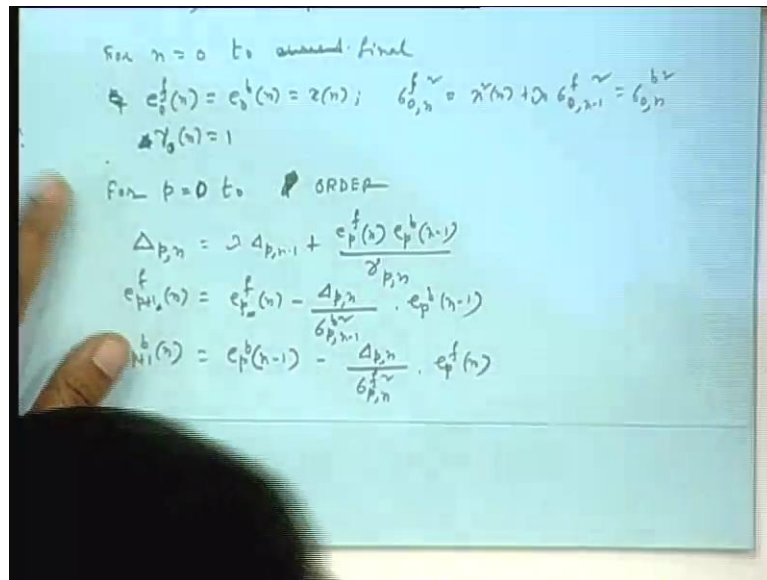 For n = 0 to final
e₀ᶠ(n) = e₀ᵇ(n) = x(n); σ₀,ₙᶠ² = x²(n) + λ σ₀,ₙ₋₁ᶠ² = σ₀,ₙᵇ²
γ₀(n) = 1
For p = 0 to ORDER
Δp,n = λ Δp,n-1 + epᶠ(n) epᵇ(n-1) / γp,n
eᶠp+1(n) = epᶠ(n) - Δp,n / σᵇ²p,n-1 . epᵇ(n-1)
ᵇ+1(n) = epᵇ(n-1) - Δp,n / σᶠ²p,n . epᶠ(n)